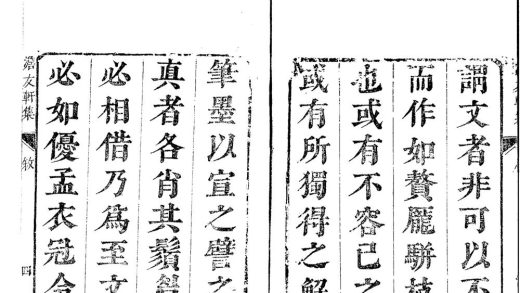 謂文者非可以不
而作如贅龐駢枝
也或有不容己之
或有所獨得之解
筆墨以宣之譬之
真者各肖其鬚
必相借乃爲至文
必如優孟衣冠
澹友軒集
四